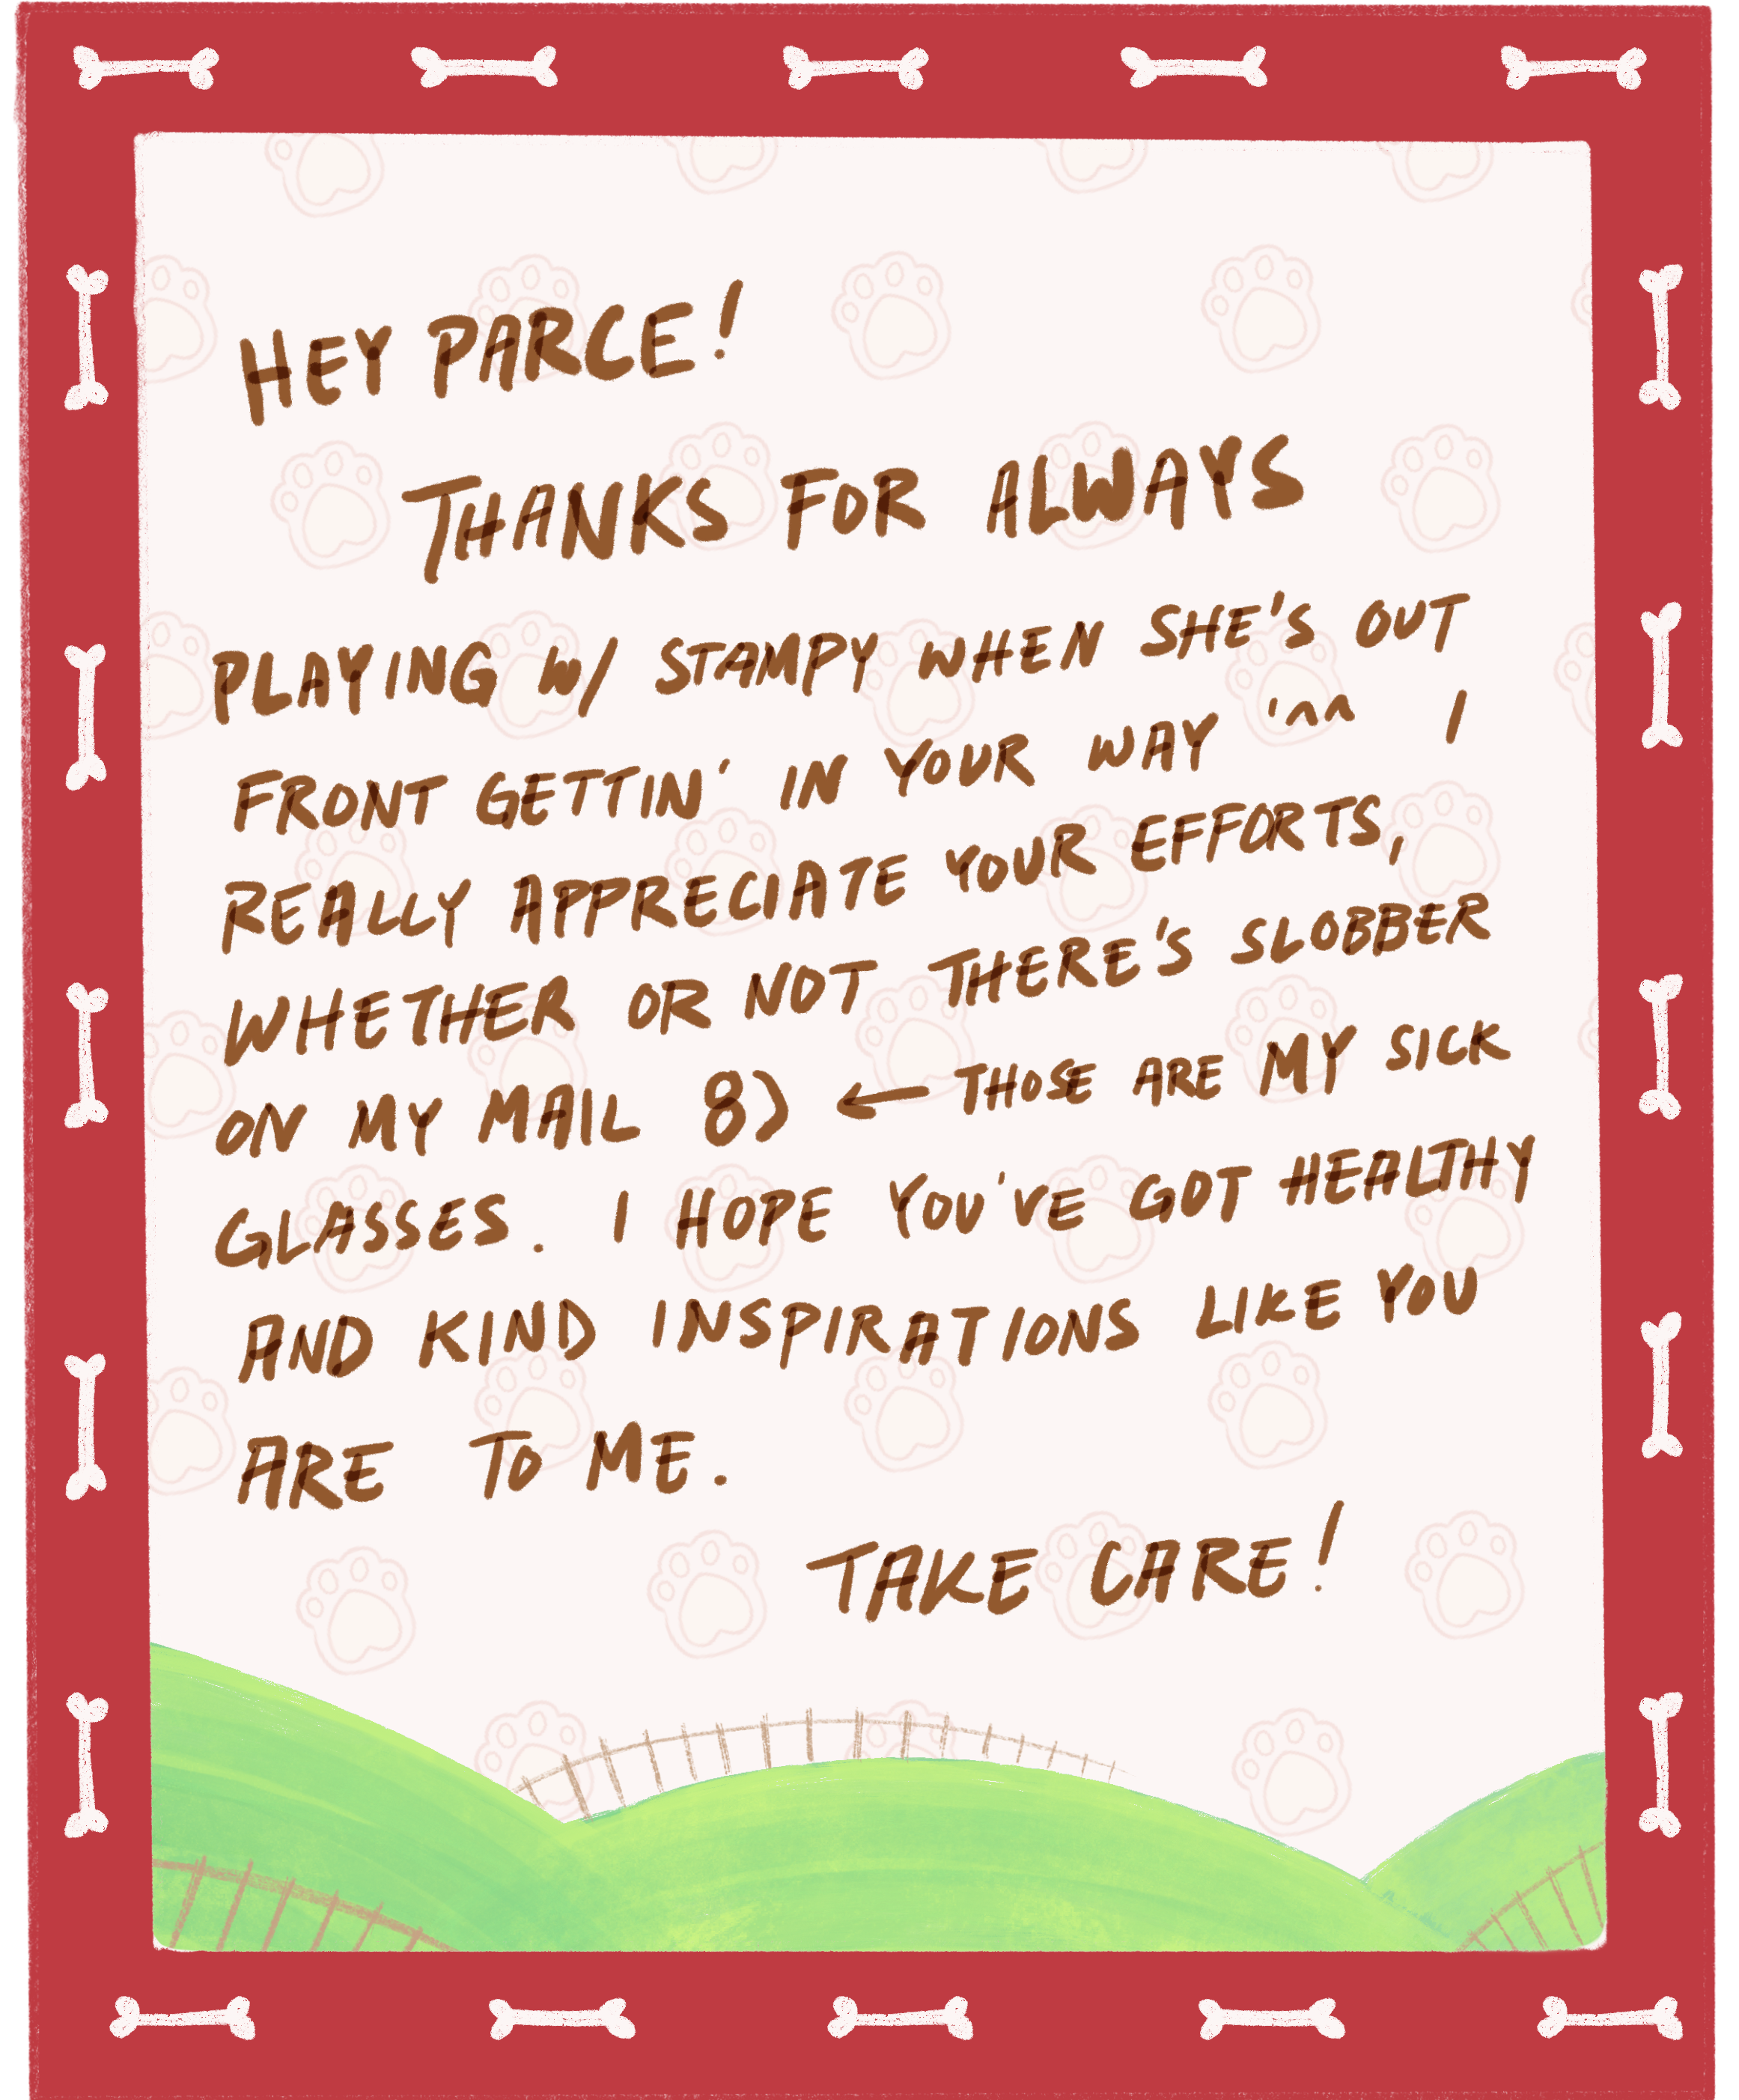 HEY PARCE!
THANKS FOR ALWAYS
PLAYING W/ STAMPY WHEN SHE'S OUT
FRONT GETTIN' IN YOUR WAY '^^ I
REALLY APPRECIATE YOUR EFFORTS,
WHETHER OR NOT THERE'S SLOBBER
ON MY MAIL 8) ← THOSE ARE MY SICK
GLASSES. I HOPE YOU'VE GOT HEALTHY
AND KIND INSPIRATIONS LIKE YOU
ARE TO ME.
TAKE CARE!